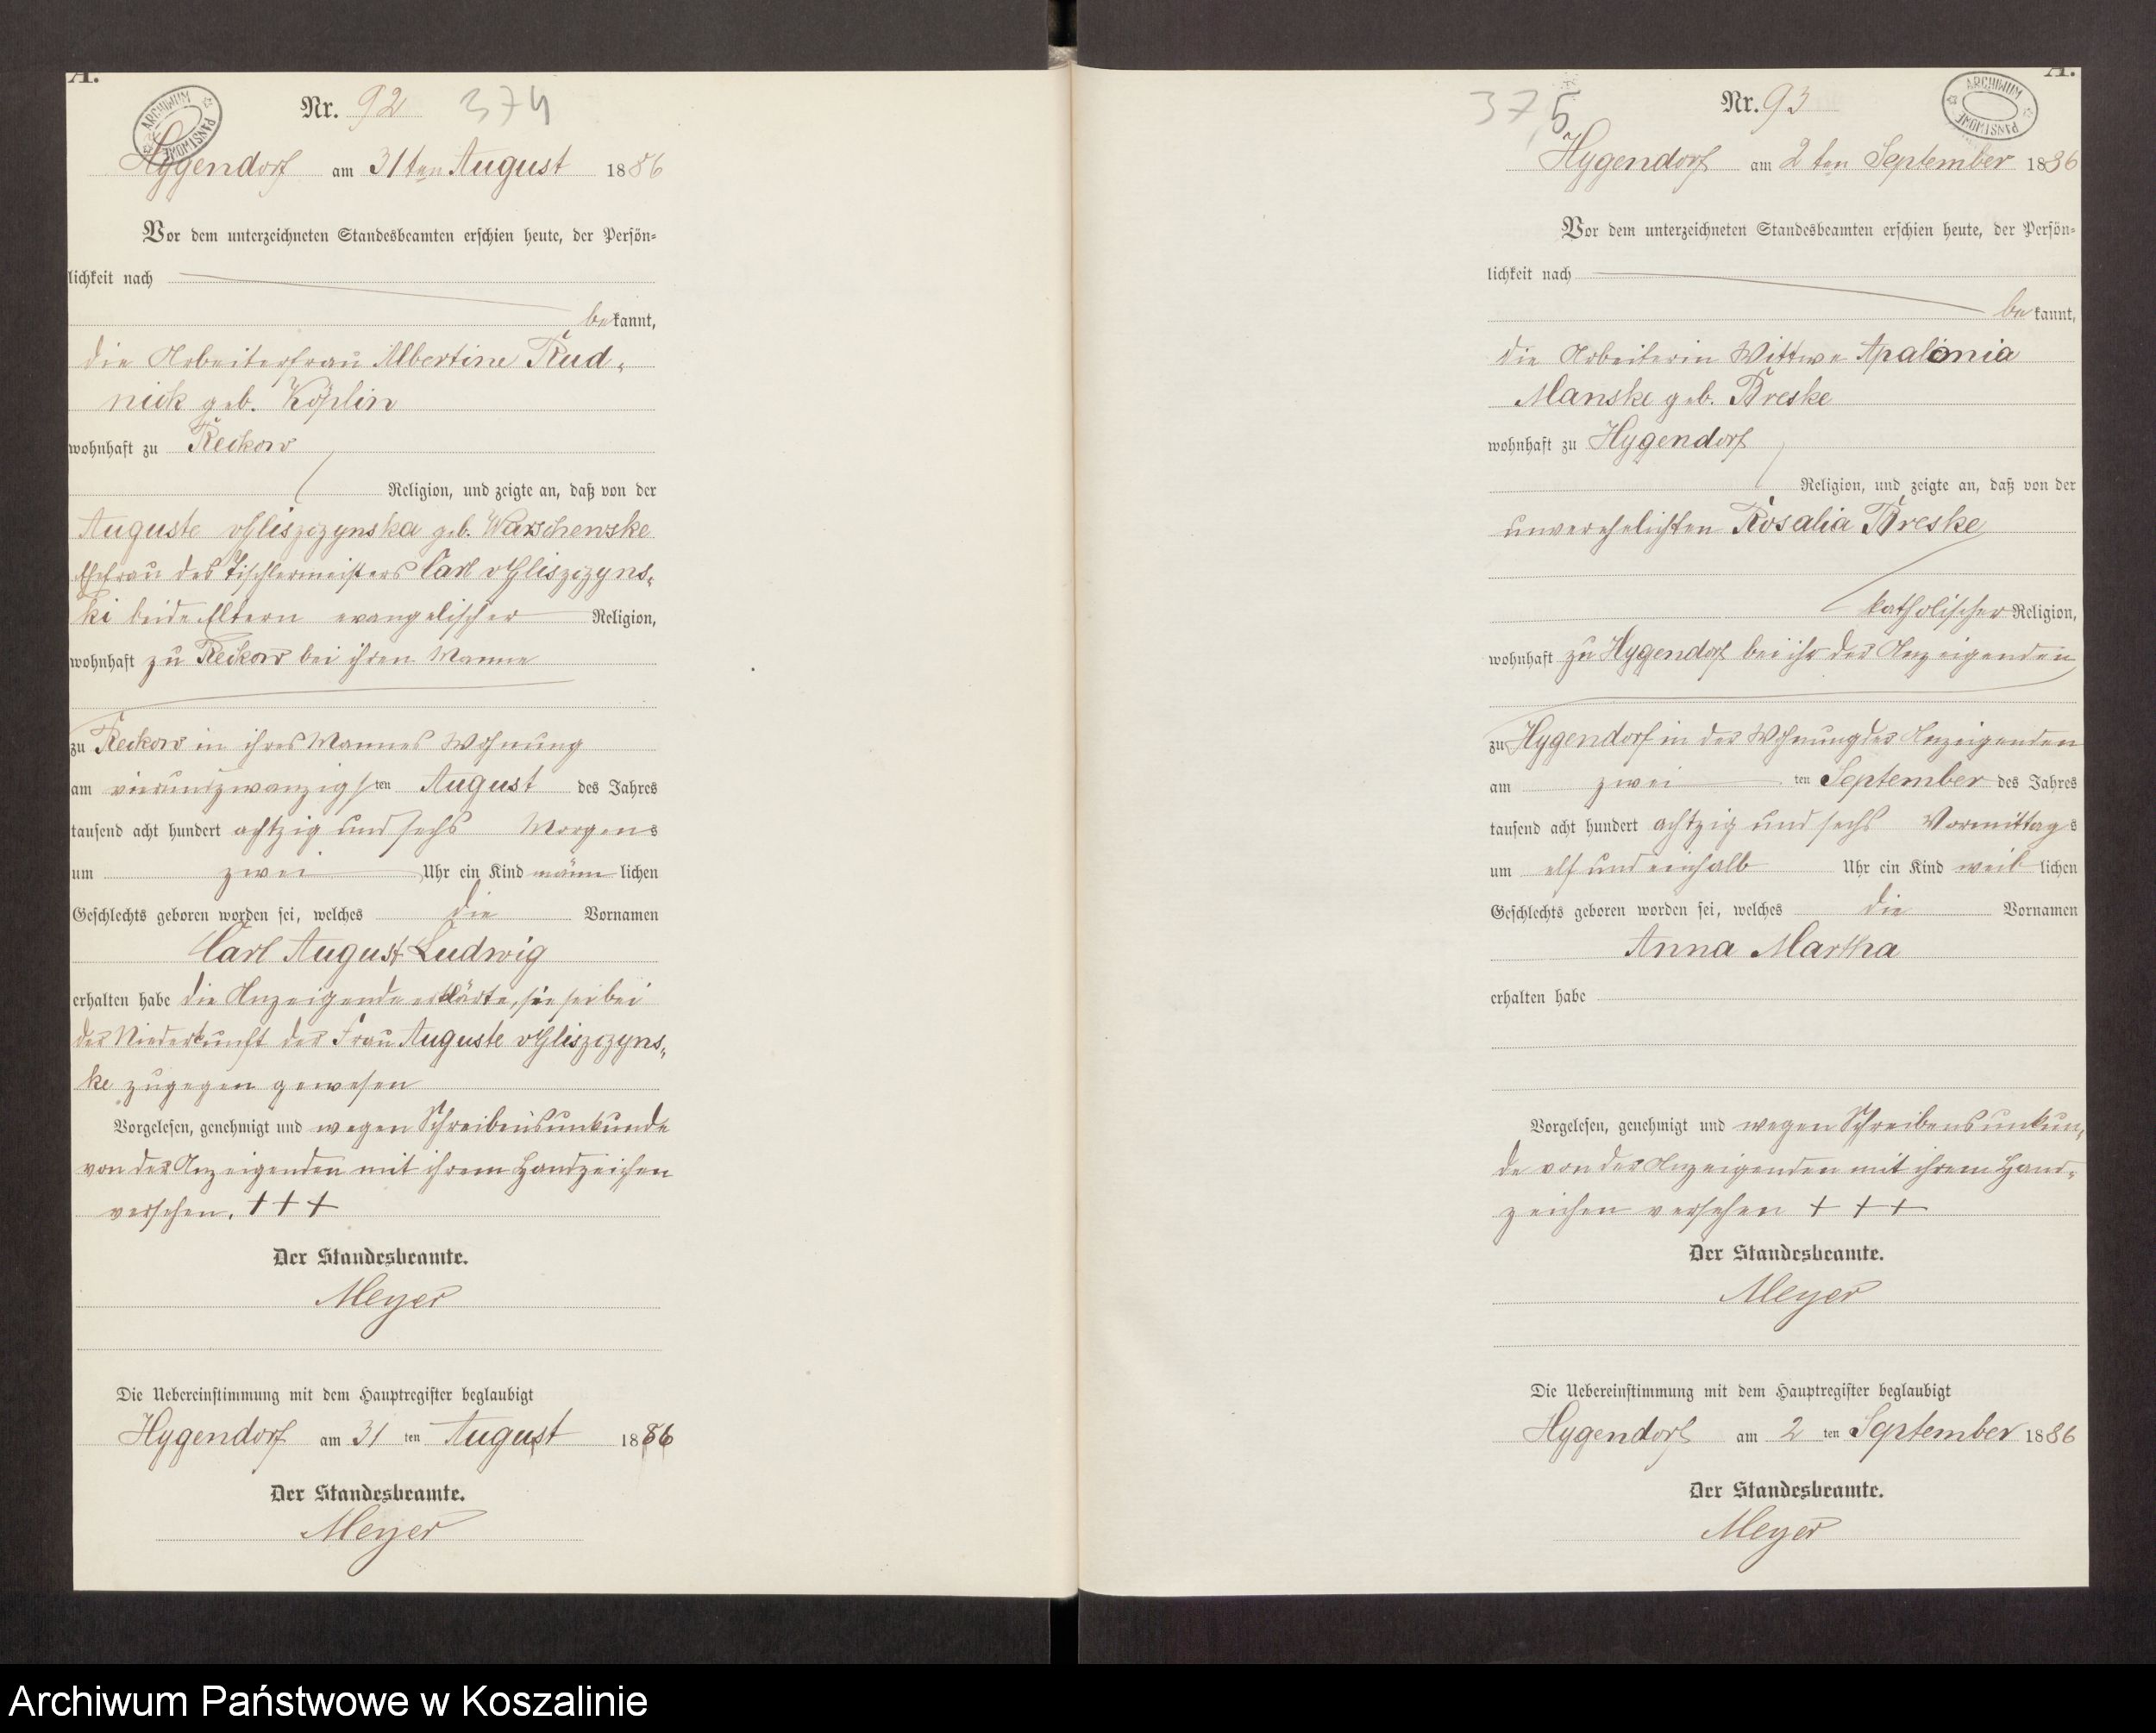 A.
ARCHIWUM PAŃSTWOWE
Nr. 92 374
Hygendorf am 31ten August 1886
Vor dem unterzeichneten Standesbeamten erschien heute, der Persön-
lichkeit nach
bekannt,
die Arbeiterfrau Albertine Rud-
nick geb. Köplin
wohnhaft zu Reckow
Religion, und zeigte an, daß von der
Auguste v Gliszczynska geb. Warschewske
Ehefrau des Tischlermeisters Carl v Gliszczyns-
ki beide Eltern evangelischer Religion,
wohnhaft zu Reckow bei ihren Manne
zu Reckow in ihres Mannes Wohnung
am vierundzwanzigsten August des Jahres
tausend acht hundert achtzig und sechs Morgens
um zwei Uhr ein Kind männlichen
Geschlechts geboren worden sei, welches die Vornamen
Carl August Ludwig
erhalten habe die Anzeigende erklärte, sie sei bei
der Niederkunft der Frau Auguste v Gliszczyns-
ke zugegen gewesen
Vorgelesen, genehmigt und wegen Schreibensunkunde
von der Anzeigenden mit ihrem Handzeichen
versehen. + + +
Der Standesbeamte.
Meyer
Die Uebereinstimmung mit dem Hauptregister beglaubigt
Hygendorf am 31 ten August 1886
Der Standesbeamte.
Meyer
A.
ARCHIWUM PAŃSTWOWE
375 Nr. 93
Hygendorf am 2 ten September 1886
Vor dem unterzeichneten Standesbeamten erschien heute, der Persön-
lichkeit nach
bekannt,
die Arbeiterin Wittwe Apalonia
Manske geb. Breske
wohnhaft zu Hygendorf
Religion, und zeigte an, daß von der
unverehelichten Rosalia Breske
katholischer Religion,
wohnhaft zu Hygendorf bei ihr der Anzeigenden
zu Hygendorf in der Wohnung der Anzeigenden
am zwei ten September des Jahres
tausend acht hundert achtzig und sechs Vormittags
um elf und einhalb Uhr ein Kind weiblichen
Geschlechts geboren worden sei, welches die Vornamen
Anna Martha
erhalten habe
Vorgelesen, genehmigt und wegen Schreibensunkun-
de von der Anzeigenden mit ihrem Hand-
zeichen versehen + + +
Der Standesbeamte.
Meyer
Die Uebereinstimmung mit dem Hauptregister beglaubigt
Hygendorf am 2 ten September 1886
Der Standesbeamte.
Meyer
Archiwum Państwowe w Koszalinie